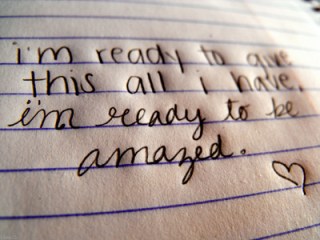 i'm ready to give
this all i have.
i'm ready to be
amazed.